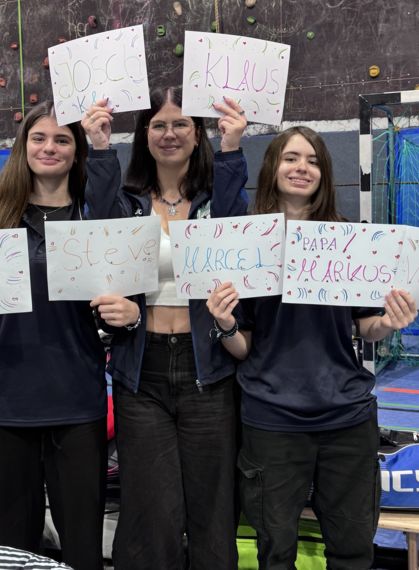 JOSCH
KLAUS
Steve
MARCEL
PAPA /
MARKUS